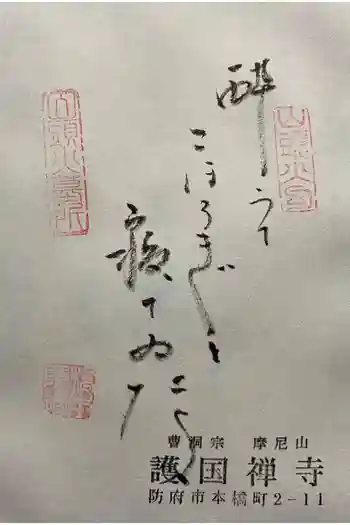 酔うて
こほろぎと
寝てゐたよ
山頭火墓所
曹洞宗 摩尼山
護国禅寺
防府市本橋町2-11